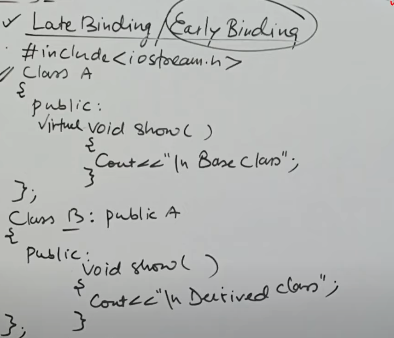 ✓ Late Binding / Early Binding
#include<iostream.h>
Class A
{
public:
virtual void show( )
{
Cout<<"\n Base Class";
}
};
Class B: public A
{
public:
void show( )
{
Cout<<"\n Derived class";
}
};